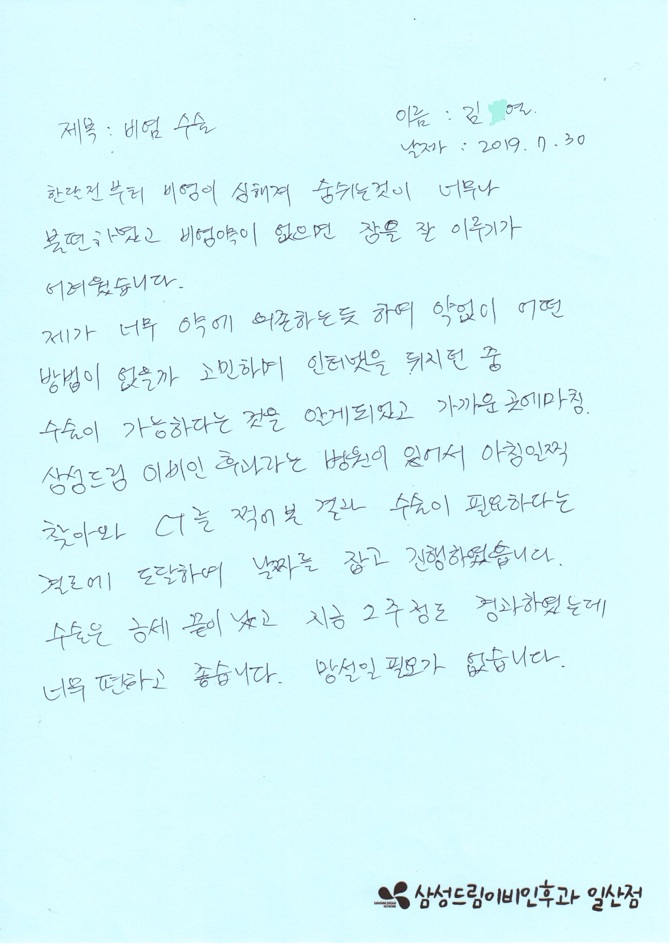 제목 : 비염 수술
이름 : 김 연.
날짜 : 2019. 7. 30
한달전부터 비염이 심해져 숨쉬는것이 너무나
불편하였고 비염약이 없으면 잠을 잘 이루기가
어려웠습니다.
제가 너무 약에 의존하는듯 하여 약없이 어떤
방법이 없을까 고민하며 인터넷을 뒤지던 중
수술이 가능하다는 것을 알게되었고 가까운 곳에마침.
삼성드림 이비인 후과라는 병원이 있어서 아침일찍
찾아와 CT를 찍어본 결과 수술이 필요하다는
결론에 도달하여 날짜를 잡고 진행하였습니다.
수술은 금세 끝이 났고 지금 2주정도 경과하였는데
너무 편하고 좋습니다. 망설일 필요가 없습니다.
삼성드림이비인후과 일산점